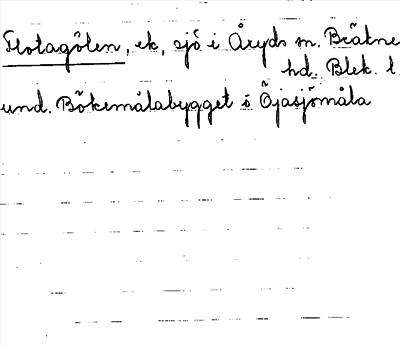 Flotagölen, ek, sjö i Åryds sn. Bräkne
hd. Blek. l.
und. Bökemålabygget o Öjasjömåla